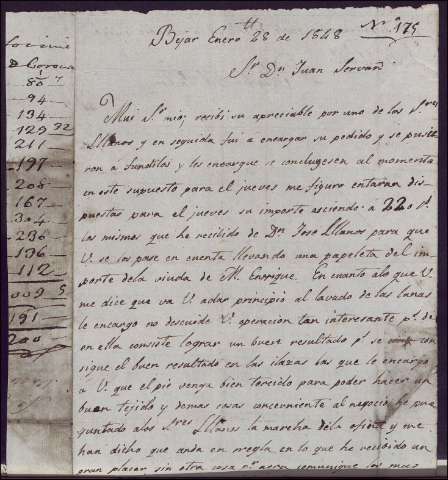 locini
Corona
80 7
94
134
129 32
211
197
208
167
304
236
136
112
009 5
191
200
Bejar Enero 28 de 1848 Nº 175
Sr. Dn Juan Servan
Mui Sr. mio; recibi su apreciable por uno de los Sres
Llanos y en seguida fui a encargar su pedido y se pusie
ron a fundilos y les encargue se concluyesen al momento
en este supuesto para el jueves me figuro entaran dis
puestas para el jueves su importe asciende a 220 rs.
los mismos que he recibido de Dn Jose Llanos para que
V. se los pase en cuenta llevando una papeleta del im
porte de la viuda de M. Enrique. En cuanto alo que V.
me dice que va V. adar principio al lavado de las lanas
le encargo no descuide V. operacion tan interesante p.r de
en ella consiste lograr un buen resultado p.r se con
sigue el buen resultado en las ilazas las que le encargo
a V. que el pie venga bien torcido para poder hacer un
buen tejido y demas cosas concerniente al negocio, he pre
guntado alos Sres Llanos la marcha dela ofina y me
han dicho que anda en rregla en lo que he recibido un
gran placer, sin otra cosa